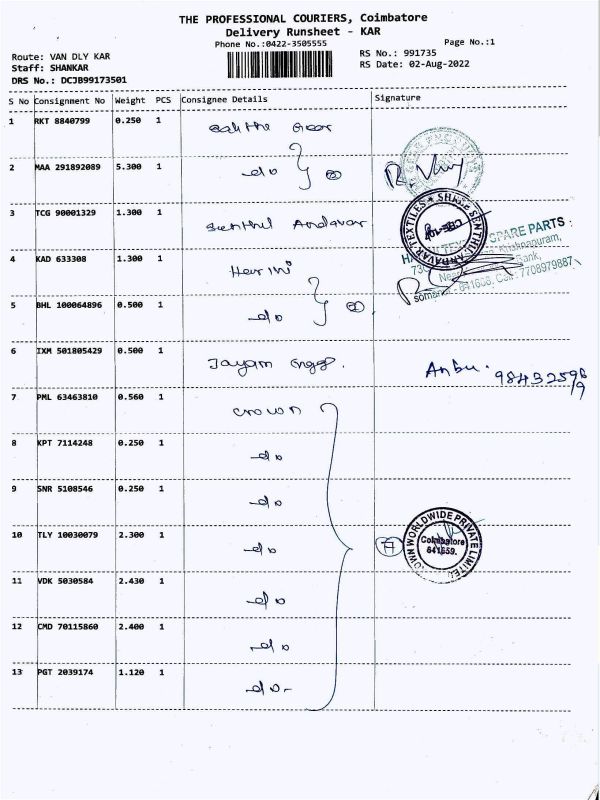 THE PROFESSIONAL COURIERS, Coimbatore
Delivery Runsheet - KAR
Phone No.:0422-3505555
Page No.:1
Route: VAN DLY KAR
RS No.: 991735
Staff: SHANKAR
RS Date: 02-Aug-2022
DRS No.: DCJB99173501
S No Consignment No Weight PCS Consignee Details Signature
1 RKT 8840799 0.250 1
2 MAA 291892089 5.300 1 do
3 TCG 90001329 1.300 1 Senthil Andavar
SHREE SENTHIL ANDAVAR TEXTILES
SPARE PARTS
4 KAD 633308 1.300 1 Harini
Krishnapuram,
Bank,
641668, Cell: 7708979887
5 BHL 100064896 0.500 1 do
6 IXM 501805429 0.500 1 Jayam Engg. Anbu. 98432596
7 PML 63463810 0.560 1 crown
8 KPT 7114248 0.250 1 do
9 SNR 5108546 0.250 1 do
10 TLY 10030079 2.300 1 do 7
OWN WORLDWIDE PRIVATE LIMITED
Coimbatore
641659.
11 VDK 5030584 2.430 1 do
12 CMD 70115860 2.400 1 do
13 PGT 2039174 1.120 1 do-